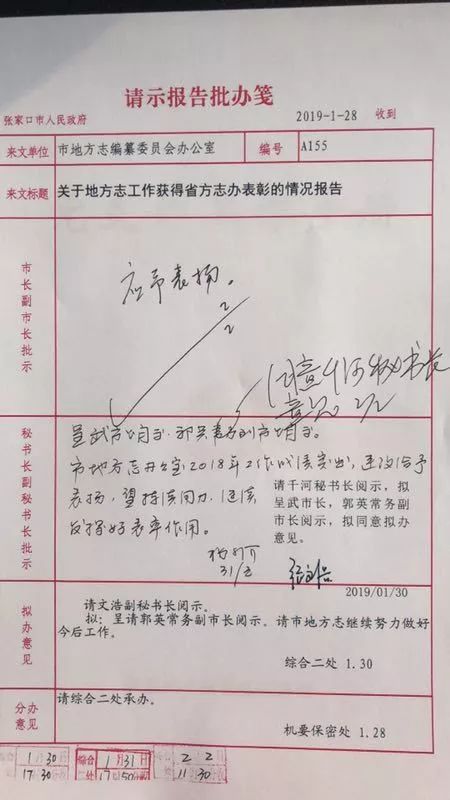 请示报告批办笺
张家口市人民政府 2019-1-28 收到
来文单位 市地方志编纂委员会办公室 编号 A155
来文标题 关于地方志工作获得省方志办表彰的情况报告
市长副市长批示
应予表扬。
2/2
同意千河秘书长
意见 2/2
秘书长副秘书长批示
呈武市长阅示、郭英常务副市长阅示。
市地方志办公室2018年工作成绩突出,建议给予
表扬,望持续用力,继续
发挥好表率作用。
31/1
请千河秘书长阅示,拟
呈武市长,郭英常务副
市长阅示,拟同意拟办
意见。
2019/01/30
拟办意见
请文浩副秘书长阅示。
拟:呈请郭英常务副市长阅示。请市地方志继续努力做好
今后工作。
综合二处 1.30
分办意见
请综合二处承办。
机要保密处 1.28
1月30
17 30
综合二处 1月31日
17 50
2 2
11 30